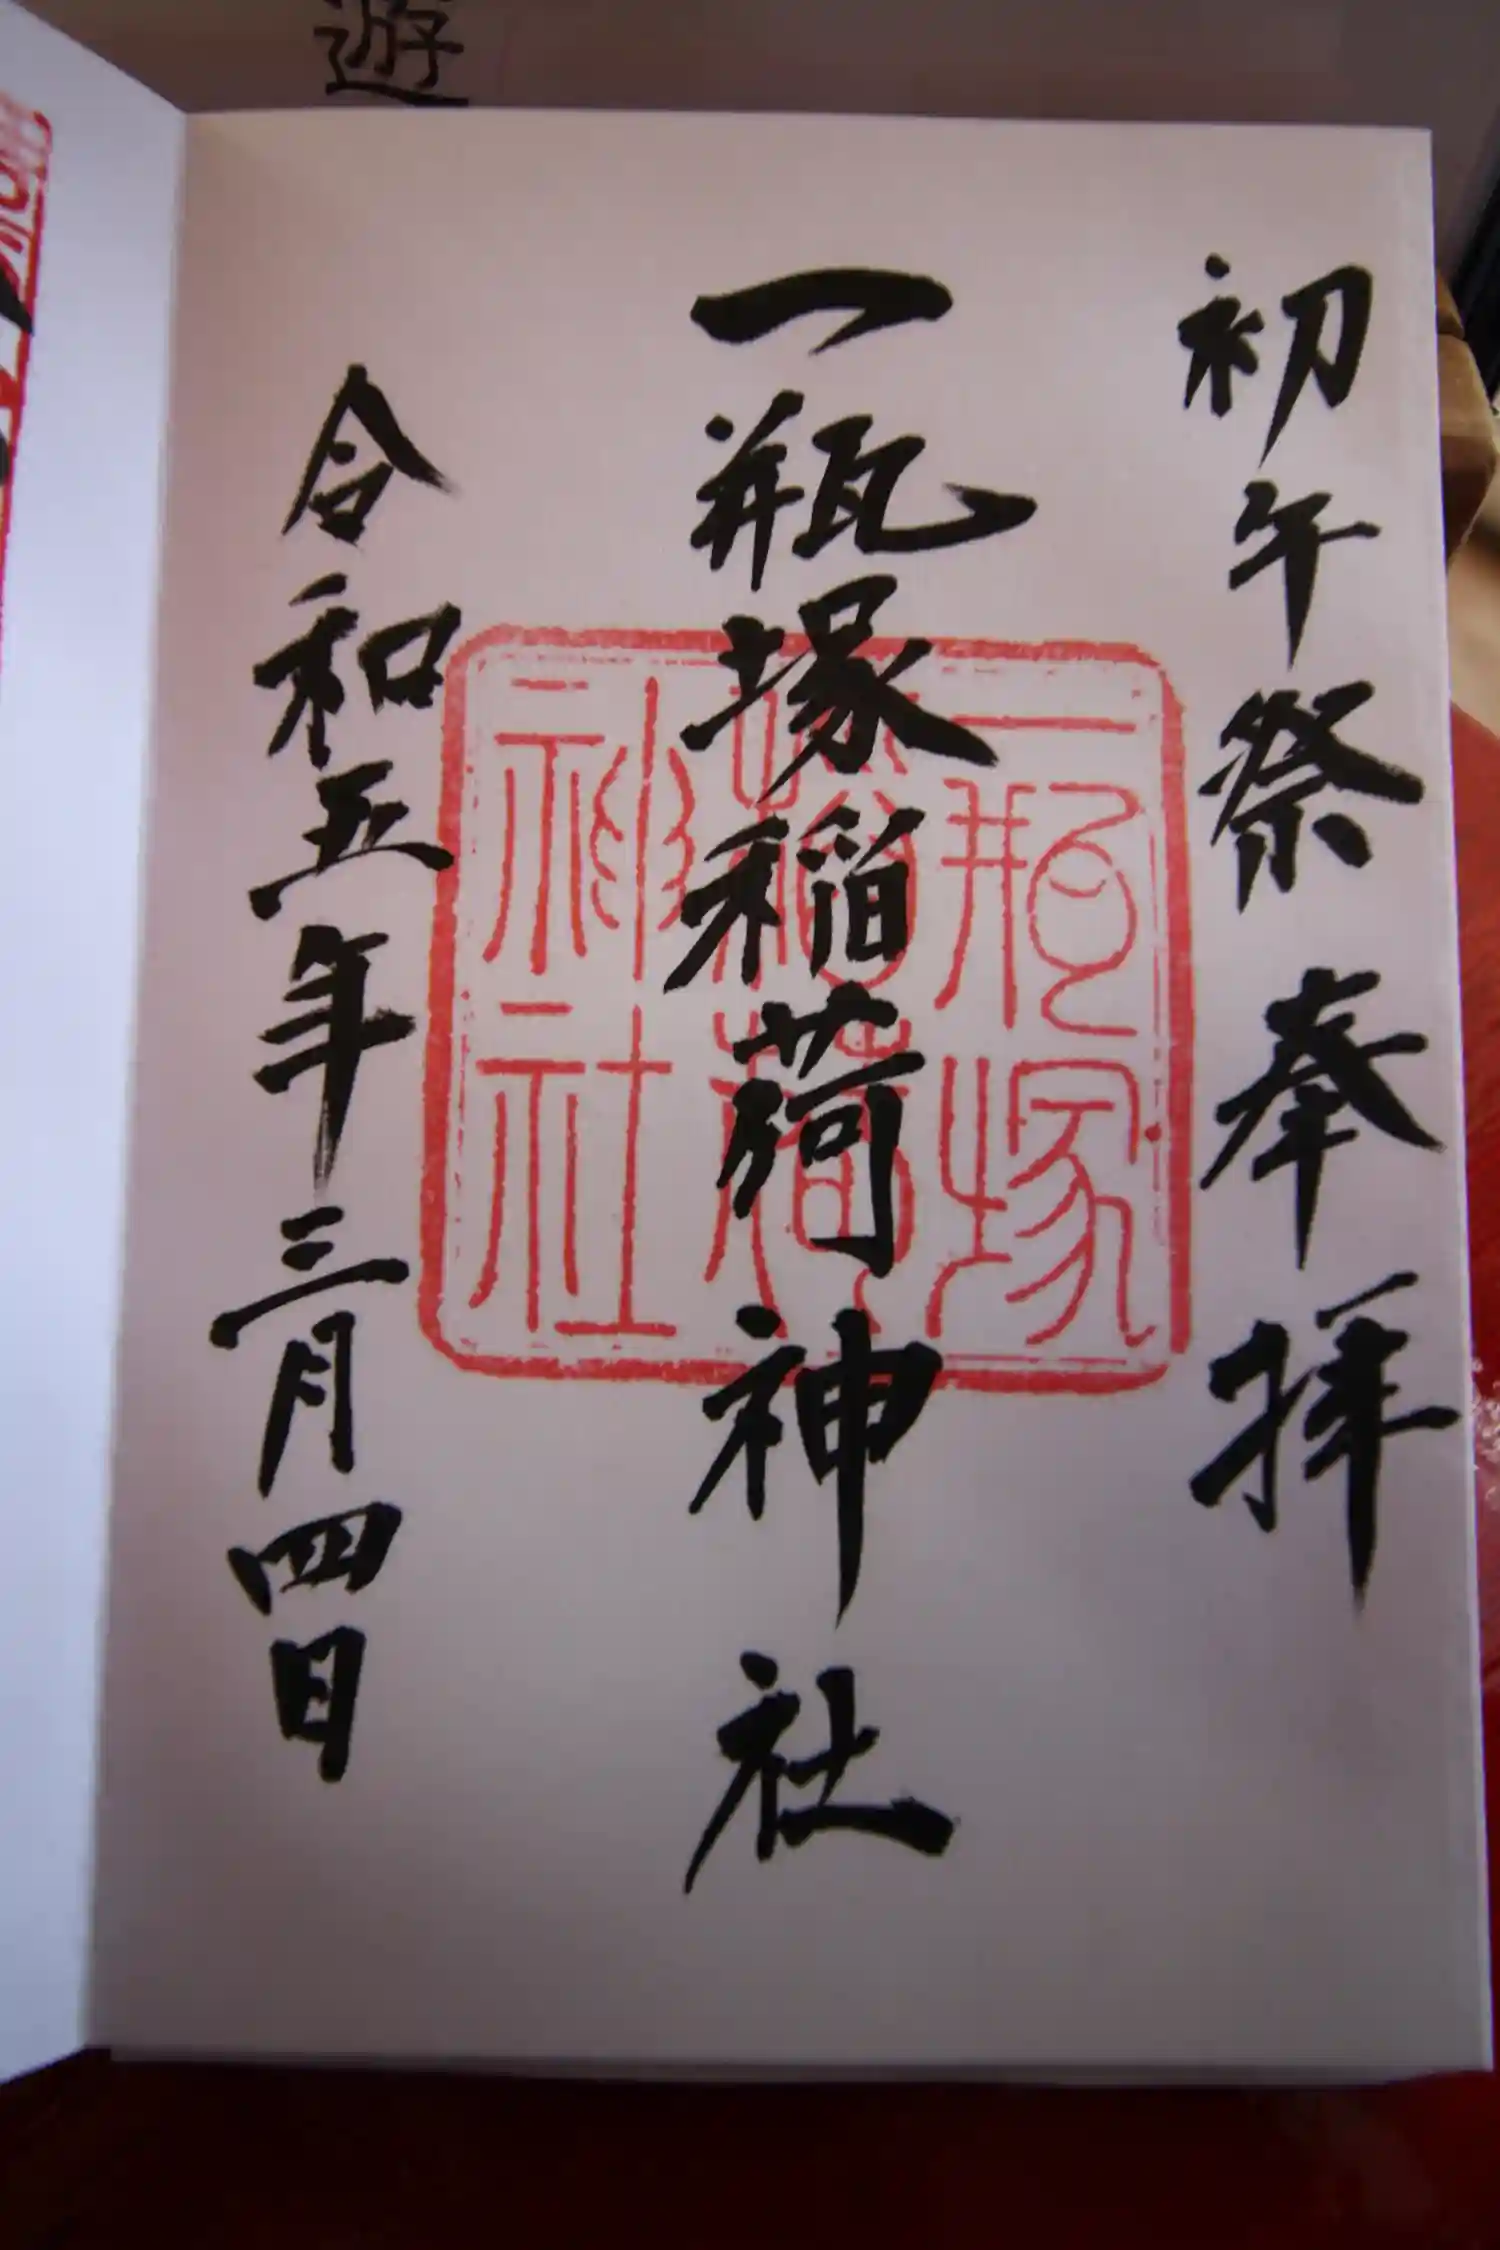 遊
初午祭 奉拝
一瓶塚稲荷神社
一瓶塚
稲荷
神社
令和五年三月四日